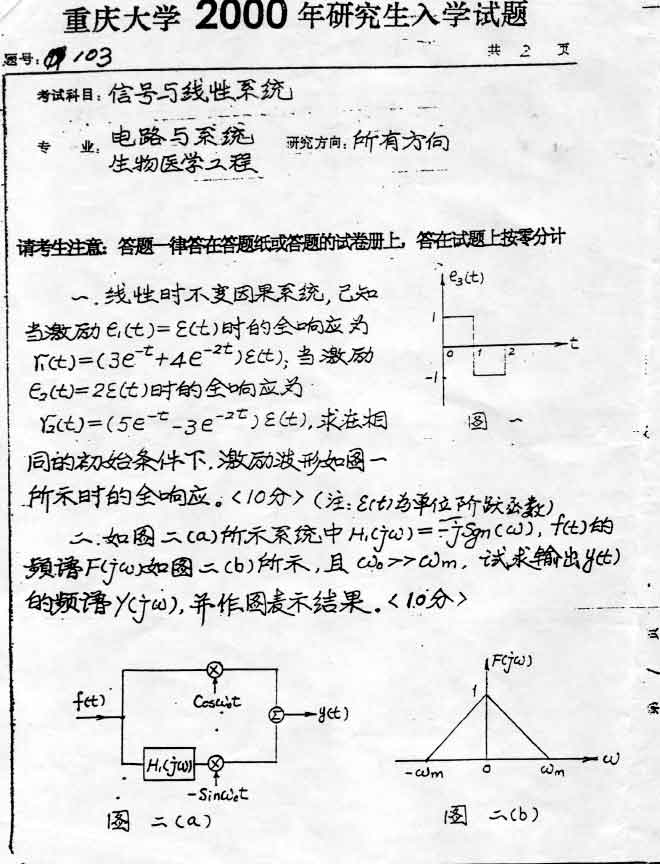 重庆大学 2000 年研究生入学试题
题号: 103
共 2 页
考试科目: 信号与线性系统
专 业: 电路与系统 研究方向: 所有方向
生物医学工程
请考生注意: 答题一律答在答题纸或答题的试卷册上, 答在试题上按零分计
一. 线性时不变因果系统, 已知
当激励 e₁(t)=ε(t)时的全响应为
r₁(t)=(3e^{-t}+4e^{-2t})ε(t); 当激励
e₂(t)=2ε(t)时的全响应为
r₂(t)=(5e^{-t}-3e^{-2t})ε(t), 求在相
同的初始条件下, 激励波形如图一
所示时的全响应。<10分> (注: ε(t)为单位阶跃函数)
e₃(t)
1
0 1 2 t
-1
图 一
二. 如图二(a)所示系统中 H₁(jω)=-jSgn(ω), f(t)的
频谱F(jω)如图二(b)所示, 且 ω₀>>ωm, 试求输出y(t)
的频谱Y(jω), 并作图表示结果。<10分>
f(t)
Cosω₀t
Σ y(t)
H₁(jω)
-Sinω₀t
图 二(a)
F(jω)
1
-ωm 0 ωm ω
图 二(b)